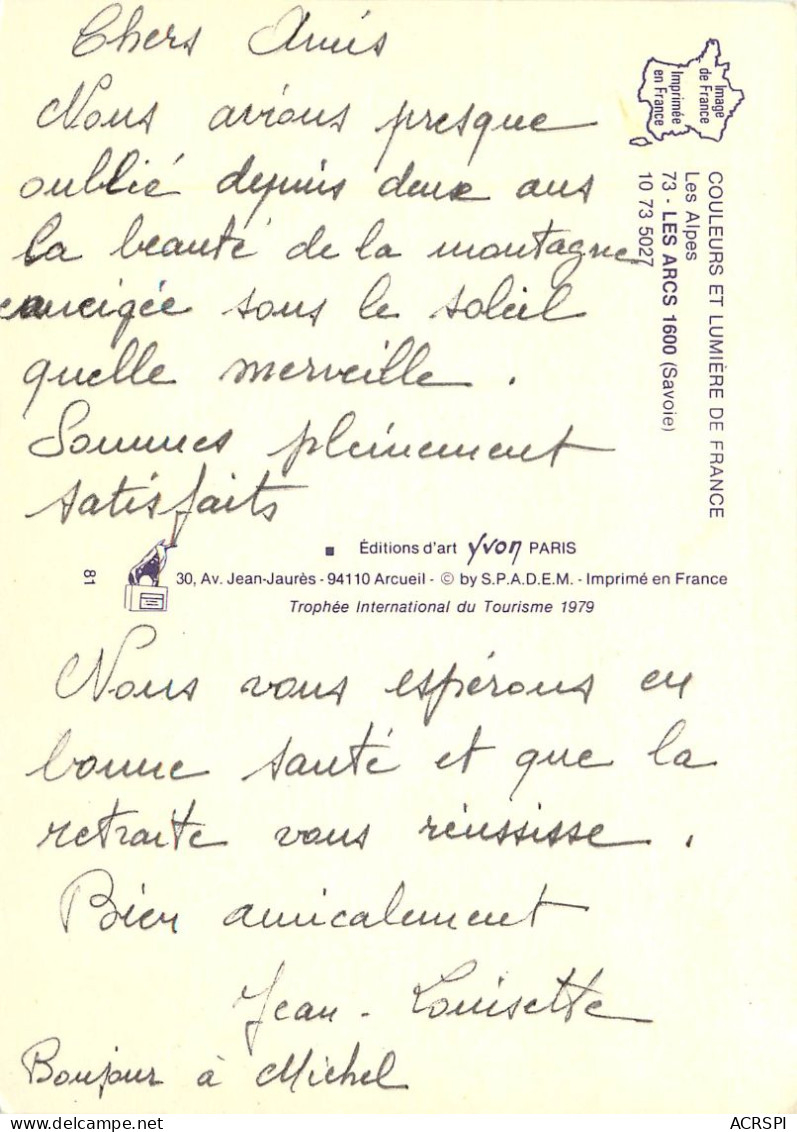 Chers Amis
Nous avions presque
oublié depuis deux ans
la beauté de la montagne
enneigée sous le soleil
quelle merveille.
Sommes pleinement
satisfaits
Image
de France
Imprimée
en France
COULEURS ET LUMIÈRE DE FRANCE
Les Alpes
73 - LES ARCS 1600 (Savoie)
10 73 5027
Éditions d'art yvon PARIS
81
30, Av. Jean-Jaurès - 94110 Arcueil - © by S.P.A.D.E.M. - Imprimé en France
Trophée International du Tourisme 1979
Nous vous espérons en
bonne santé et que la
retraite vous réussisse.
Bien amicalement
Jean - Louisette
Bonjour à Michel
ACRSPI